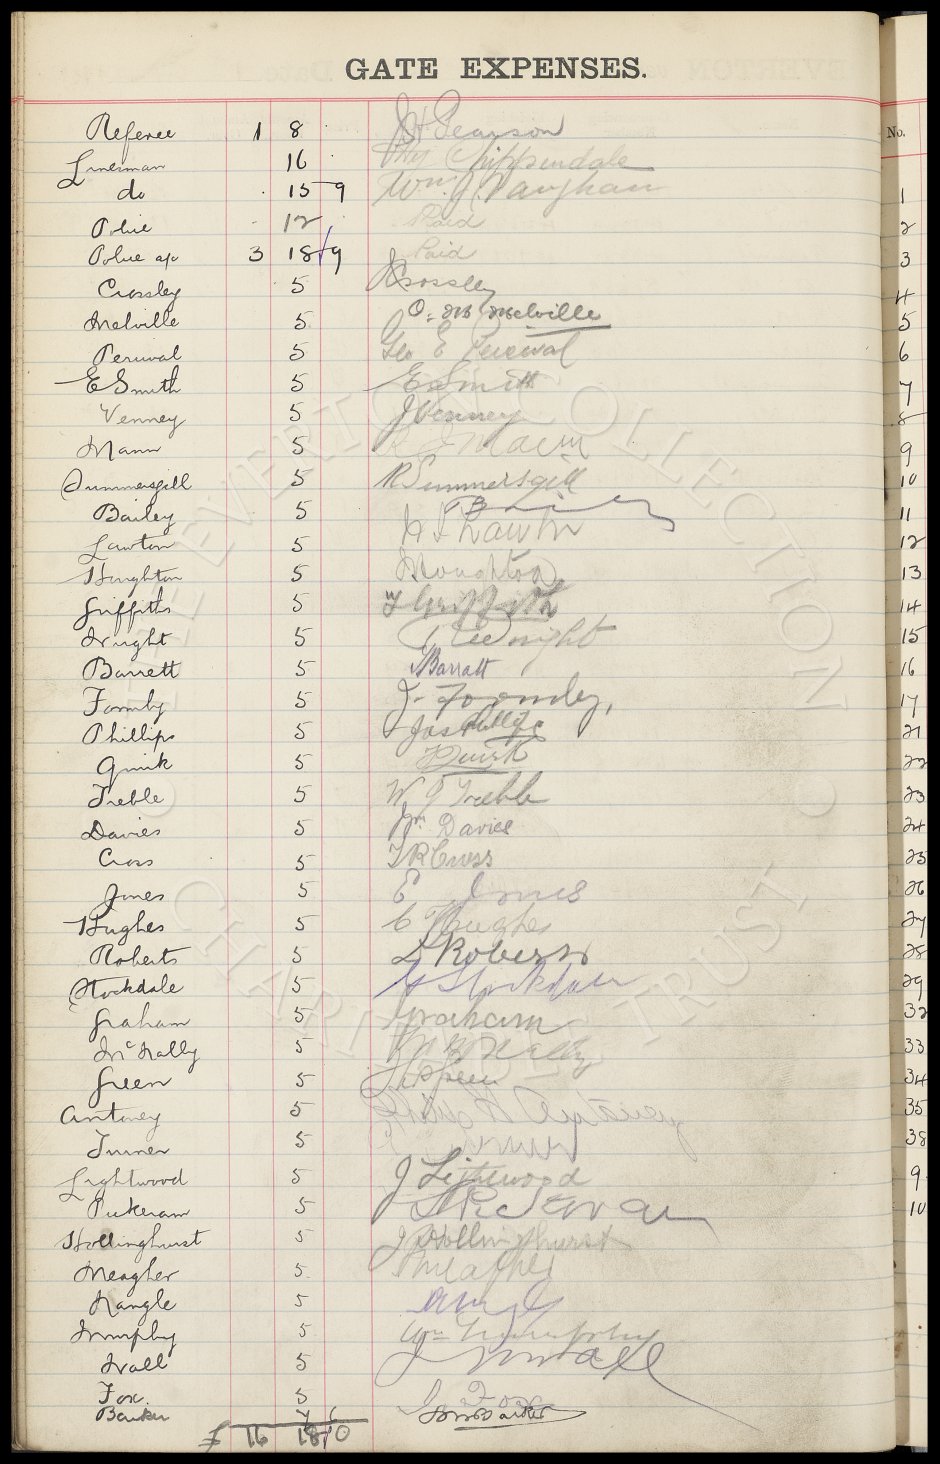 GATE EXPENSES.
No.
Referee 1 8 . J H Pearson
Linesman 16 . Chippendale
do . 15 9 Wm J Vaughan 1
Police . 12 Paid 2
Police a/c 3 18 9 Paid 3
Crossley 5 J Crossley 4
Melville 5 Melville 5
Percival 5 Geo E Percival 6
E Smith 5 E Smith 7
Venney 5 J Venney 8
Mann 5 Mann 9
Summersgill 5 R Summersgill 10
Bailey 5 Bailey 11
Lawton 5 Lawton 12
Houghton 5 Houghton 13
Griffiths 5 Griffith 14
Wright 5 Wright 15
Barrett 5 Barratt 16
Formby 5 J. Formby, 17
Phillips 5 Jas Phillips 21
Quirk 5 Quirk 22
Treble 5 W J Treble 23
Davies 5 Jn Davies 24
Cross 5 T R Cross 25
Jones 5 E Jones 26
Hughes 5 C Hughes 27
Roberts 5 Roberts 28
Stockdale 5 Stockdale 29
Graham 5 Graham 32
McNally 5 McNally 33
Green 5 Green 34
Antoney 5 35
Turner 5 38
Lightwood 5 J Lightwood 9
Pickeram 5 10
Hollinghurst 5 J Hollinghurst
Meagher 5 Meagher
Nangle 5
Murphy 5 Wm Murphy
Wall 5 J Wall
Fox 5 Fox
Barker 7 6 Barker
£ 16 18 0
THE EVERTON COLLECTION CHARITABLE TRUST